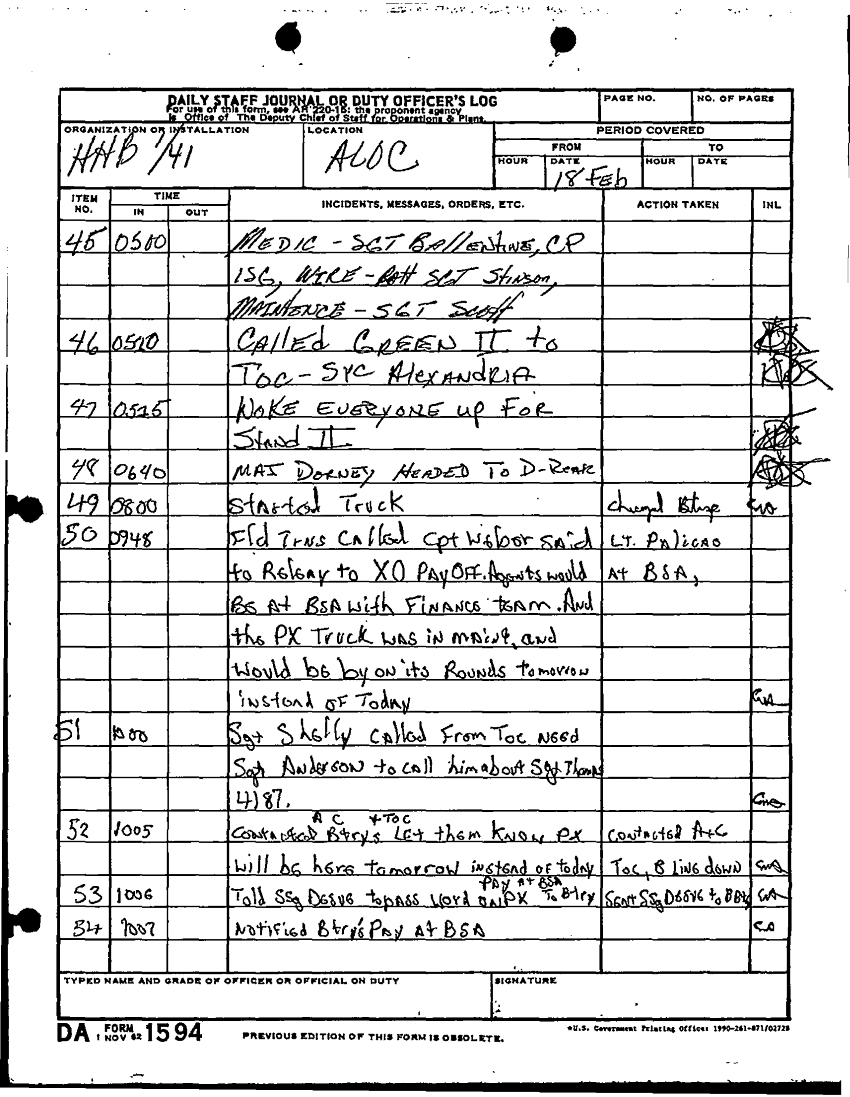 DAILY STAFF JOURNAL OR DUTY OFFICER'S LOG
For use of this form, see AR 220-15; the proponent agency
is Office of The Deputy Chief of Staff for Operations & Plans.
PAGE NO.
NO. OF PAGES
ORGANIZATION OR INSTALLATION
HHB 1/41
LOCATION
ALOC
PERIOD COVERED
FROM
TO
HOUR
DATE
18 Feb
HOUR
DATE
ITEM NO.
TIME
IN
OUT
INCIDENTS, MESSAGES, ORDERS, ETC.
ACTION TAKEN
INL
45 0500 MEDIC - SGT BALLENTINE, CP
1SG, WIRE - SGT Stinson,
MAINTENCE - SGT Scott
46 0510 CALLED GREEN II to
TOC - SYC ALEXANDRIA
47 0515 WOKE EVERYONE UP FOR
Stand II
48 0640 MAJ DORNEY HEADED TO D-REAR
49 0800 Started Truck
50 0948 Fld Trns Called Cpt Welbor said LT. Palicao
to Relay to XO PAYOFF. Agents would At BSA,
BE At BSA with FINANCE team. And
the PX Truck was in maint, and
would be by on its Rounds tomorrow
instead of Today
51 1000 Sgt Shelly called From Toc Need
Sgt Anderson to call him about Sgt Thomas
4187.
A C + TOC
52 1005 Contacted Btrys LET them Know PX Contacted A+C
will be here tomorrow instead of today Toc, B line down
PAY At BSA
53 1006 Told SSg to pass word on PX To Btry Sent SSg to B Btry
54 1007 Notified Btry's PAY At BSA
TYPED NAME AND GRADE OF OFFICER OR OFFICIAL ON DUTY
SIGNATURE
DA FORM 1 NOV 62 1594
PREVIOUS EDITION OF THIS FORM IS OBSOLETE.
*U.S. Government Printing Office: 1990-261-871/02728